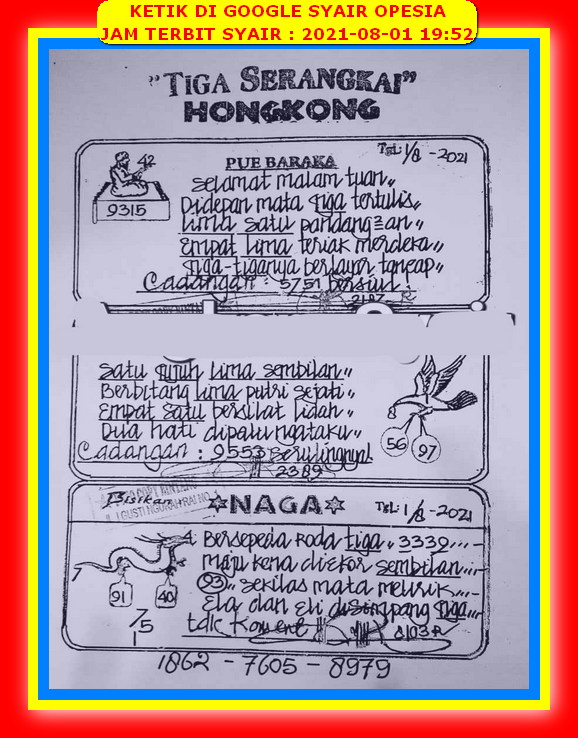 KETIK DI GOOGLE SYAIR OPESIA
JAM TERBIT SYAIR : 2021-08-01 19:52
"TIGA SERANGKAI"
HONGKONG
42
9315
PUE BARAKA
Tgl: 1/8 - 2021
Selamat malam tuan,,
Didepan mata tiga tertulis,,
Lima satu pandang=an,,
Empat lima teriak merdeka,,
Tiga-tiganya berlayar tancap,,
Cadangan : 5751 bersiul!
2187
Satu tujuh lima sembilan,,
Berbitang lima putri sejati,,
Empat satu bersilat lidah,,
Dua hati dipalu ngataku,,
Cadangan : 9553 Serulingnya!
2389
56
97
Bisikan
NAGA
Tgl: 1/8 - 2021
Bersepeda Roda tiga,, 3339,,,-
Maju kena di ekor sembilan,,,-
93,, sekilas mata melirik,,,-
Ela dan Eli disimpang tiga,,,-
tdk
8103
91
40
7
4
7/5
1
1862 - 7605 - 8979